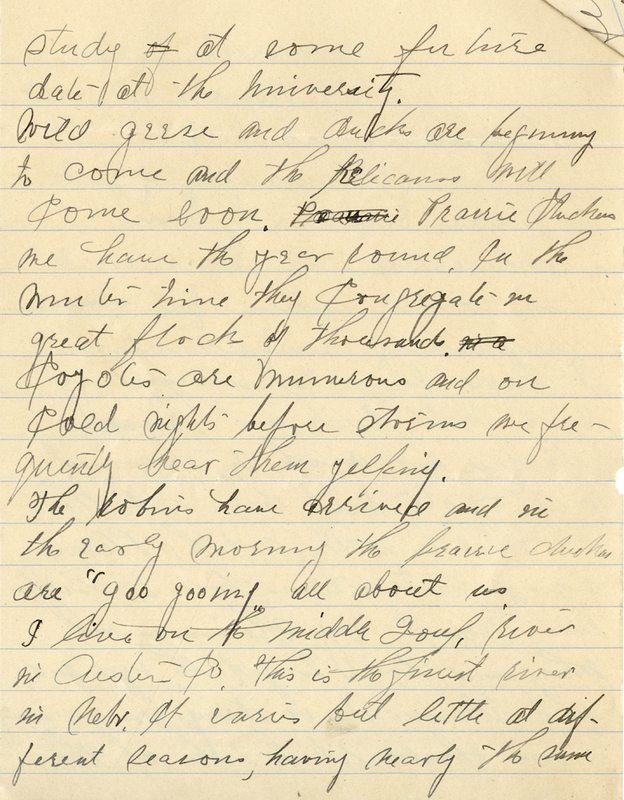 study of at some future
date at the University.
Wild geese and ducks are beginning
to come and the Pelicanos will
Come soon. Prairie Chickens
we have the year round. In the
winter time they Congregate in
great flock of thousands. in a
Coyotes are numerous and on
Cold nights before storms we fre-
quently hear them yelping.
The robins have arrived and in
the early morning the prairie chickens
are "goo gooing" all about us
I live on the middle Loup, river
in Custer Co. This is the finest river
in Nebr. It varies but little at dif-
ferent seasons, having nearly the same